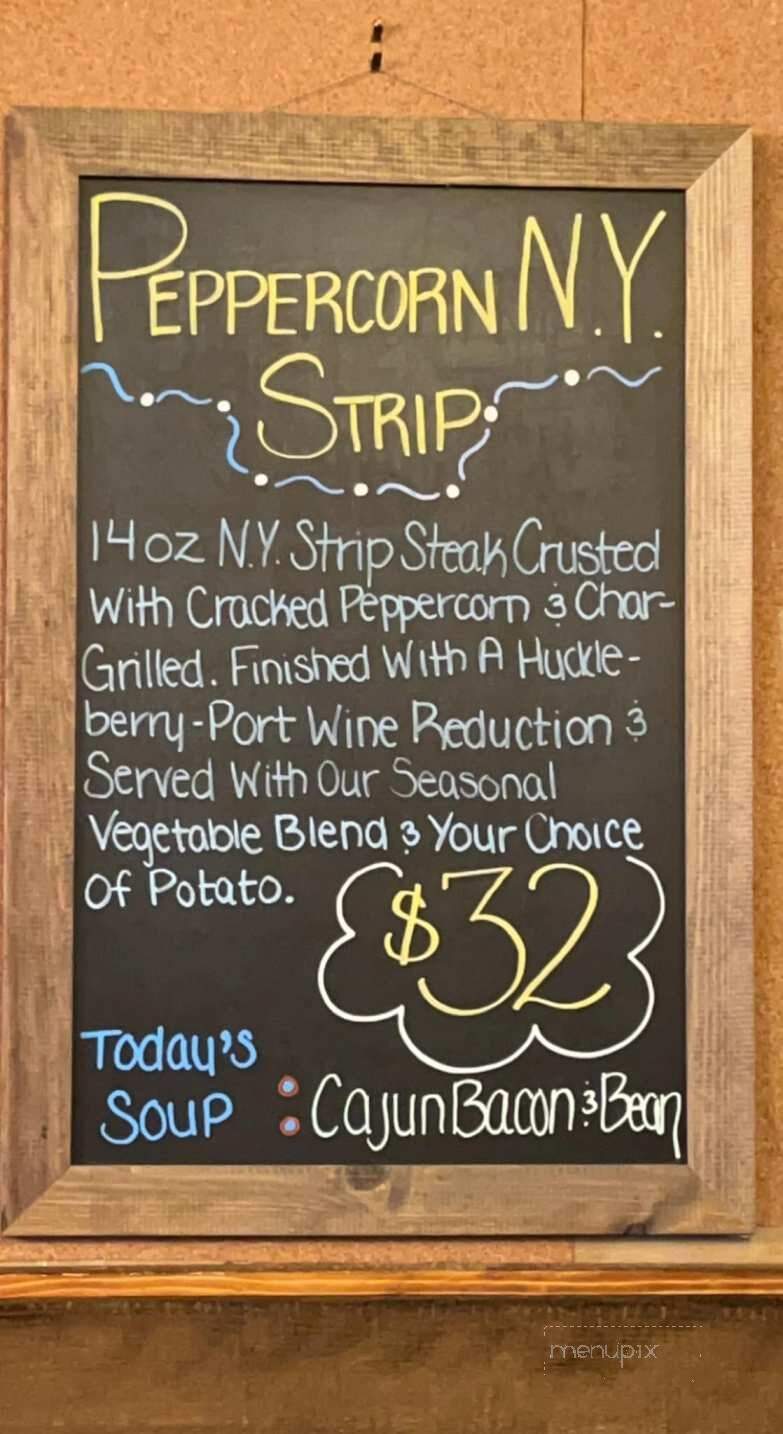 PEPPERCORN N.Y.
STRIP
14 oz N.Y. Strip Steak Crusted
With Cracked Peppercorn & Char-
Grilled. Finished With A Huckle-
berry-Port Wine Reduction &
Served With Our Seasonal
Vegetable Blend & Your Choice
Of Potato.
$32
Today's
Soup : Cajun Bacon & Bean
menupix